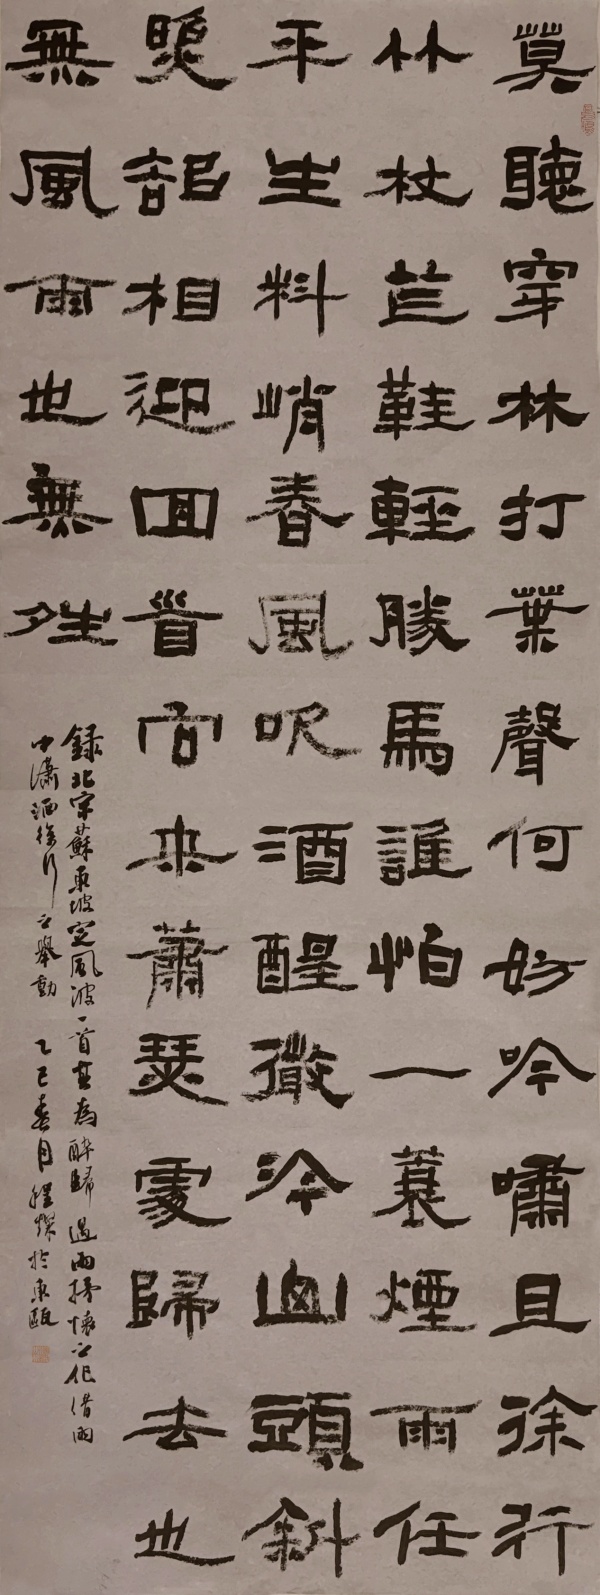 莫聽穿林打葉聲何妨吟嘯且徐行
竹杖芒鞋輕勝馬誰怕一蓑煙雨任
平生料峭春風吹酒醒微冷山頭斜
照卻相迎回首向來蕭瑟處歸去也
無風雨也無夝
錄北宋蘇東坡定風波一首此為醉歸遇雨抒懷之作借雨
中瀟洒徐行之舉動 乙巳春月 燦於東甌